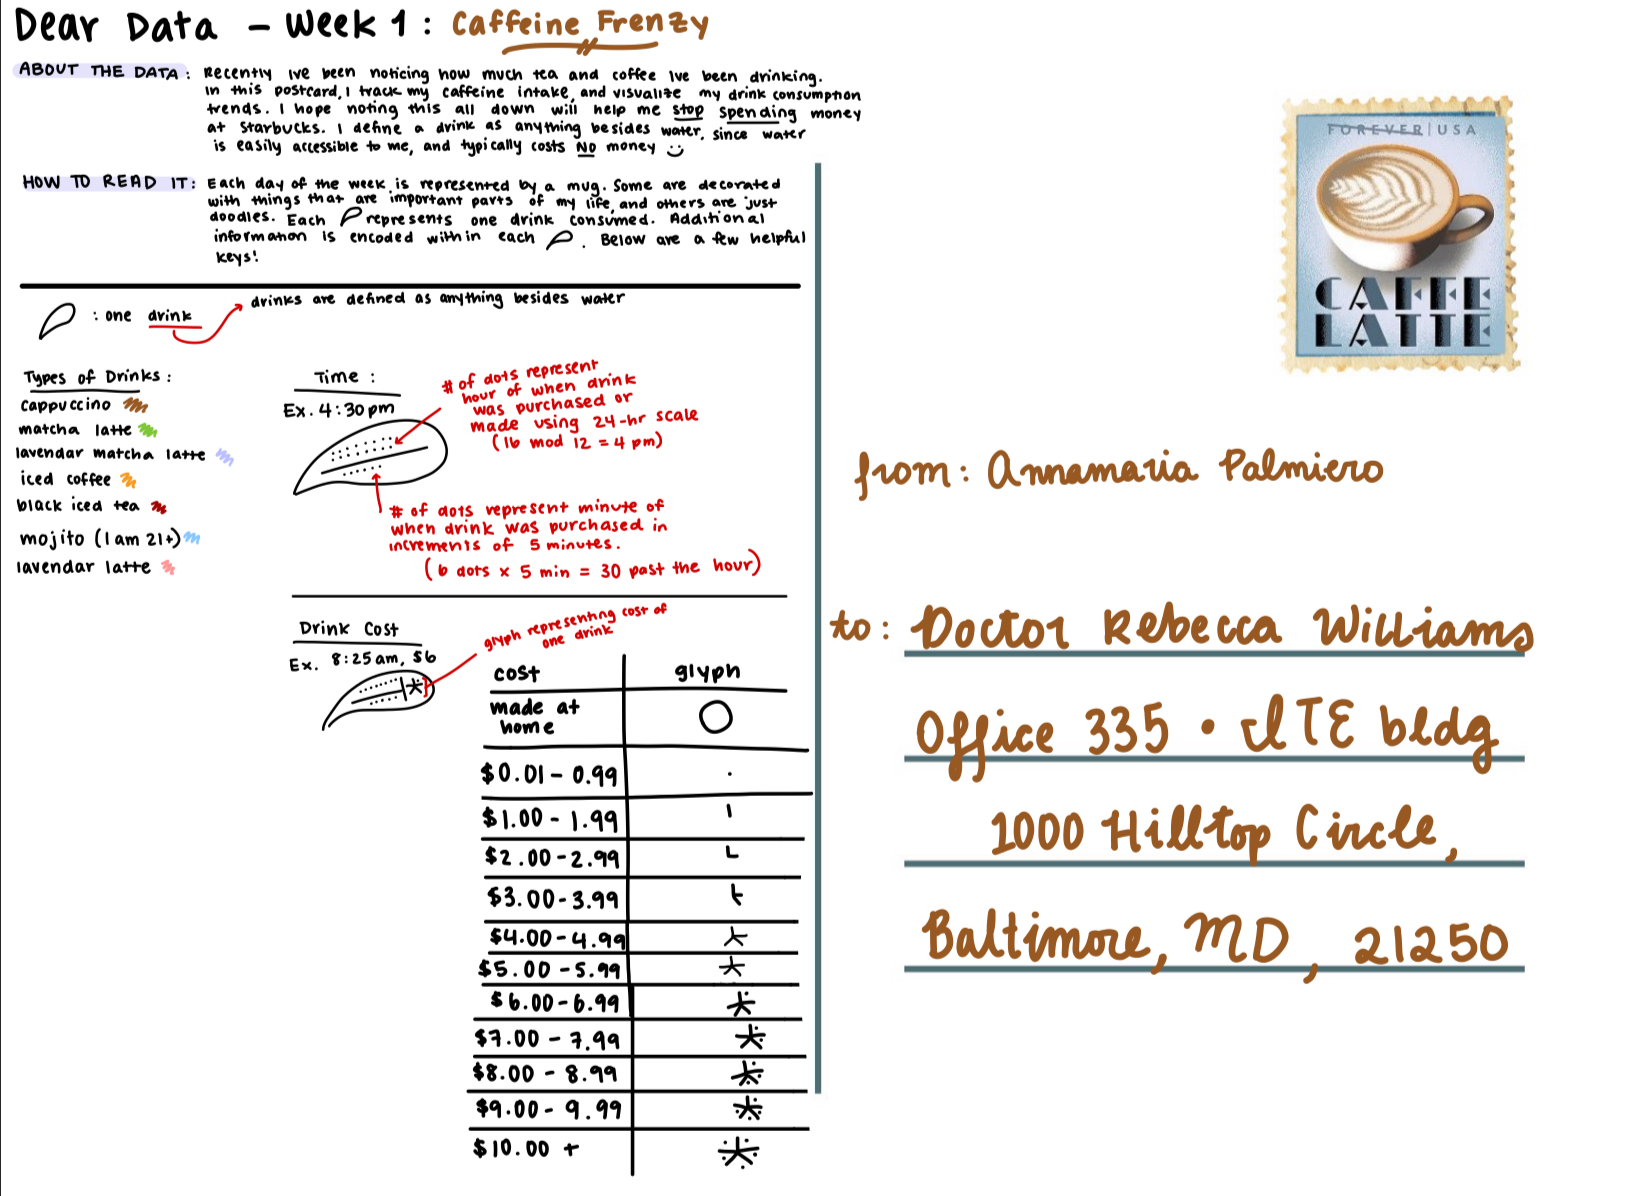 Dear Data - Week 1: Caffeine Frenzy
ABOUT THE DATA: Recently Ive been noticing how much tea and coffee Ive been drinking.
In this postcard, I track my caffeine intake, and visualize my drink consumption
trends. I hope noting this all down will help me stop spending money
at Starbucks. I define a drink as anything besides water, since water
is easily accessible to me, and typically costs NO money
HOW TO READ IT: Each day of the week is represented by a mug. Some are decorated
with things that are important parts of my life, and others are just
doodles. Each represents one drink consumed. Additional
information is encoded within each . Below are a few helpful
keys!
: one drink
drinks are defined as anything besides water
Types of Drinks:
cappuccino
matcha latte
lavendar matcha latte
iced coffee
black iced tea
mojito (I am 21+)
lavendar latte
Time:
Ex. 4:30pm
# of dots represent
hour of when drink
was purchased or
made using 24-hr scale
(16 mod 12 = 4 pm)
# of dots represent minute of
when drink was purchased in
increments of 5 minutes.
(6 dots x 5 min = 30 past the hour)
Drink Cost
Ex. 8:25am, $6
glyph representing cost of
one drink
cost glyph
made at
home
$0.01 - 0.99
$1.00 - 1.99
$2.00 - 2.99
$3.00 - 3.99
$4.00 - 4.99
$5.00 - 5.99
$6.00 - 6.99
$7.00 - 7.99
$8.00 - 8.99
$9.00 - 9.99
$10.00 +
FOREVER | USA
CAFFE
LATTE
from: Annamaria Palmiero
to: Doctor Rebecca Williams
Office 335 • ITE bldg
1000 Hilltop Circle,
Baltimore, MD, 21250